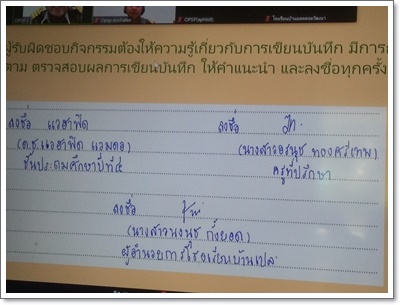 ผู้รับผิดชอบกิจกรรมต้องให้ความรู้เกี่ยวกับการเขียนบันทึก มีการ
ตาม ตรวจสอบผลการเขียนบันทึก ให้คำแนะนำ และลงชื่อทุกครั้ง
ลงชื่อ แวฮาฟิต
ลงชื่อ
(ด.ช.แวฮาฟิต แวมดอ)
(นางสาวอรนุช ทองศรีเทพ)
ชั้นประถมศึกษาปีที่ ๕
ครูที่ปรึกษา
ลงชื่อ
(นางสาวนงนุช กั้งยอด)
ผู้อำนวยการโรงเรียนบ้านเปล